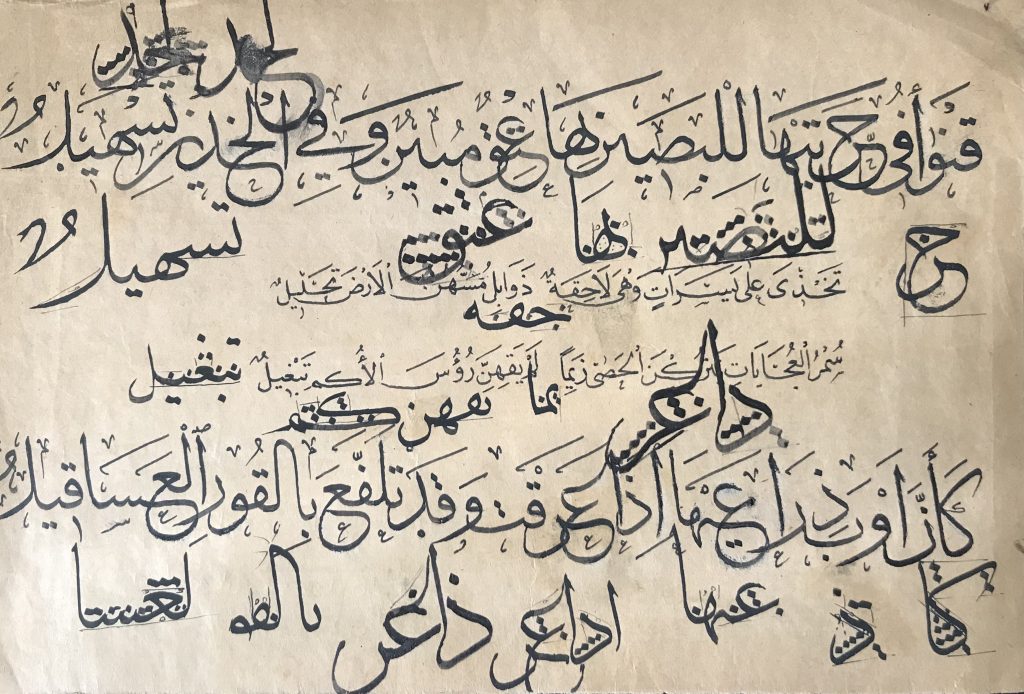 قَنْوَاءُ فِي حُرَّتَيْهَا لِلْبَصِيرِ بِهَا عِتْقٌ مُبِينٌ وَفِي الْخَدَّيْنِ تَسْهِيلُ
حر للبصير بها عتق تسهيل
تَخْذِى عَلَى يَسَرَاتٍ وَهْىَ لَاحِقَةٌ ذَوَابِلٌ مَسُّهُنَّ الْأَرْضَ تَحْلِيلُ
سُمْرُ الْعُجَايَاتِ يَتْرُكْنَ الْحَصَى زِيَمًا لَمْ يَقِهِنَّ رُؤُسَ الْأُكْمِ تَنْعِيلُ
يما
كَأَنَّ أَوْبَ ذِرَاعَيْهَا إِذَا عَرِقَتْ وَقَدْ تَلَفَّعَ بِالْقُورِ الْعَسَاقِيلُ
كا عيها اذا عر ذا عر بالقو